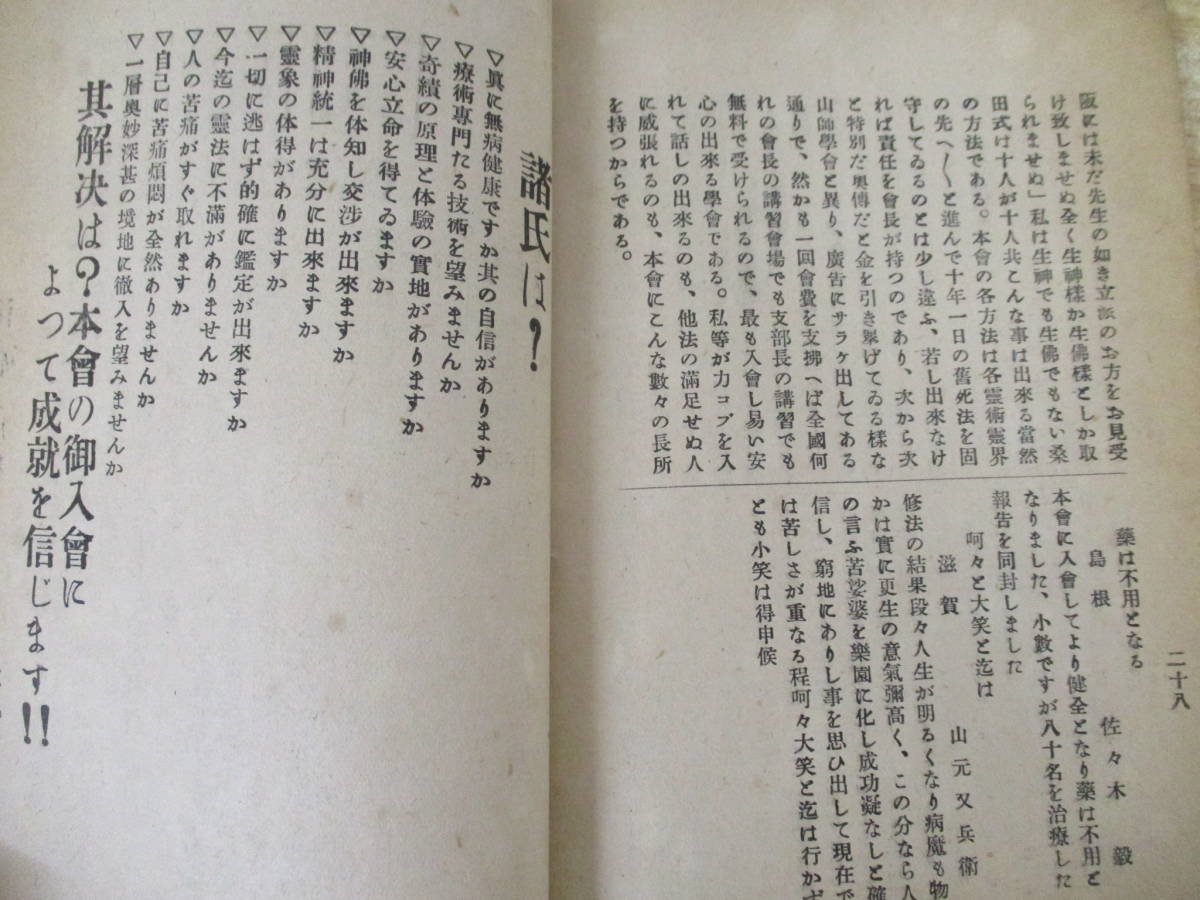 阪には未だ先生の如き立派のお方をお見受
け致しませぬ全く生神樣か生佛樣としか取
られませぬ」私は生神でも生佛でもない桑
田式は十人が十人共こんな事は出來る當然
の方法である。本會の各方法は各靈術靈界
の先へ〱と進んで十年一日の舊死法を固
守してゐるのとは少し違ふ、若し出來なけ
れば責任を會長が持つのであり、次から次
と特別だ奥傳だと金を引き擧げてゐる樣な
山師學會と異り、廣告にサラケ出してある
通りで、然かも一回會費を支拂へば全國何
れの會長の講習會場でも支部長の講習でも
無料で受けられるので、最も入會し易い安
心の出來る學會である。私等が力コブを入
れて話しの出來るのも、他法の滿足せぬ人
に威張れるのも、本會にこんな數々の長所
を持つからである。
二十八
藥は不用となる
島根 佐々木毅
本會に入會してより健全となり藥は不用と
なりました、小數ですが八十名を治療した
報告を同封しました
呵々と大笑と迄は
滋賀 山元又兵衛
修法の結果段々人生が明るくなり病魔も物
かは實に更生の意氣彌高く、この分なら人
の言ふ苦娑婆を樂園に化し成功凝なしと確
信し、窮地にありし事を思ひ出して現在で
は苦しさが重なる程呵々大笑と迄は行かず
とも小笑は得申候
諸氏は?
▽眞に無病健康ですか其の自信がありますか
▽療術專門たる技術を望みませんか
▽奇績の原理と体驗の實地がありますか
▽安心立命を得てゐますか
▽神佛を体知し交涉が出來ますか
▽精神統一は充分に出來ますか
▽靈象の体得がありますか
▽一切に逃はず的確に鑑定が出來ますか
▽今迄の靈法に不滿がありませんか
▽人の苦痛がすぐ取れますか
▽自己に苦痛煩悶が全然ありませんか
▽一層奥妙深甚の境地に徹入を望みませんか
其解決は?本會の御入會に
よつて成就を信じます!!